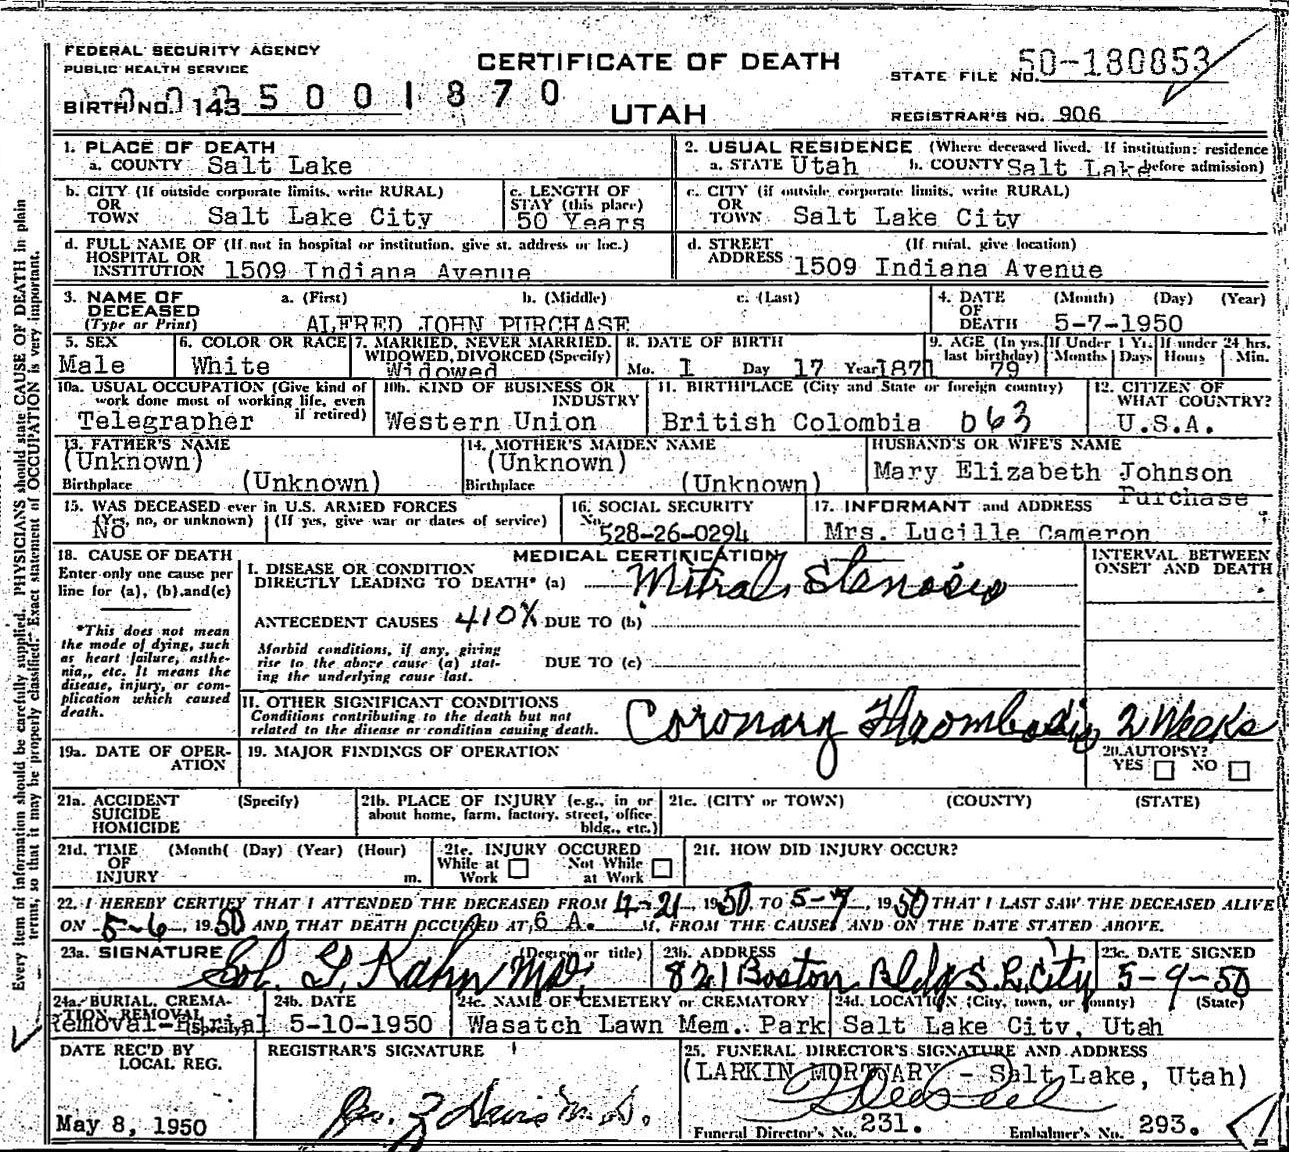 FEDERAL SECURITY AGENCY
PUBLIC HEALTH SERVICE
CERTIFICATE OF DEATH
UTAH
STATE FILE NO. 50-180853
BIRTH NO. 143 5001870
REGISTRAR'S NO. 906
1. PLACE OF DEATH
a. COUNTY Salt Lake
2. USUAL RESIDENCE (Where deceased lived. If institution: residence before admission)
a. STATE Utah b. COUNTY Salt Lake
b. CITY (If outside corporate limits, write RURAL)
OR
TOWN Salt Lake City
c. LENGTH OF
STAY (this place)
50 Years
c. CITY (if outside corporate limits, write RURAL)
OR
TOWN Salt Lake City
d. FULL NAME OF (If not in hospital or institution, give st. address or loc.)
HOSPITAL OR
INSTITUTION 1509 Indiana Avenue
d. STREET (If rural, give location)
ADDRESS 1509 Indiana Avenue
3. NAME OF a. (First) b. (Middle) c. (Last)
DECEASED
(Type or Print) ALFRED JOHN PURCHASE
4. DATE (Month) (Day) (Year)
OF
DEATH 5-7-1950
5. SEX
Male
6. COLOR OR RACE
White
7. MARRIED, NEVER MARRIED,
WIDOWED, DIVORCED (Specify)
Widowed
8. DATE OF BIRTH
Mo. 1 Day 17 Year 1871
9. AGE (In yrs. last birthday) 79
If Under 1 Yr. Months Days
If under 24 hrs. Hours Min.
10a. USUAL OCCUPATION (Give kind of
work done most of working life, even
if retired)
Telegrapher
10b. KIND OF BUSINESS OR
INDUSTRY
Western Union
11. BIRTHPLACE (City and State or foreign country)
British Colombia 063
12. CITIZEN OF
WHAT COUNTRY?
U.S.A.
13. FATHER'S NAME
(Unknown)
Birthplace (Unknown)
14. MOTHER'S MAIDEN NAME
(Unknown)
Birthplace (Unknown)
HUSBAND'S OR WIFE'S NAME
Mary Elizabeth Johnson
Purchase
15. WAS DECEASED ever in U.S. ARMED FORCES
(Yes, no, or unknown) (If yes, give war or dates of service)
No
16. SOCIAL SECURITY
No. 528-26-0294
17. INFORMANT and ADDRESS
Mrs. Lucille Cameron
18. CAUSE OF DEATH
Enter only one cause per
line for (a), (b), and (c)
*This does not mean
the mode of dying, such
as heart failure, asthe-
nia,, etc. It means the
disease, injury, or com-
plication which caused
death.
MEDICAL CERTIFICATION
I. DISEASE OR CONDITION
DIRECTLY LEADING TO DEATH* (a) Mitral Stenosis
ANTECEDENT CAUSES 410X DUE TO (b)
Morbid conditions, if any, giving
rise to the above cause (a) stat-
ing the underlying cause last.
DUE TO (c)
II. OTHER SIGNIFICANT CONDITIONS
Conditions contributing to the death but not
related to the disease or condition causing death.
Coronary Thrombosis
INTERVAL BETWEEN
ONSET AND DEATH
2 Weeks
19a. DATE OF OPER-
ATION
19. MAJOR FINDINGS OF OPERATION
20. AUTOPSY?
YES NO
21a. ACCIDENT (Specify)
SUICIDE
HOMICIDE
21b. PLACE OF INJURY (e.g., in or
about home, farm, factory, street, office
bldg., etc.)
21c. (CITY or TOWN) (COUNTY) (STATE)
21d. TIME (Month( (Day) (Year) (Hour)
OF
INJURY m.
21e. INJURY OCCURED
While at Work Not While at Work
21f. HOW DID INJURY OCCUR?
22. I HEREBY CERTIFY THAT I ATTENDED THE DECEASED FROM 4-21, 1950 TO 5-7, 1950 THAT I LAST SAW THE DECEASED ALIVE
ON 5-6, 1950 AND THAT DEATH OCCURED AT 6 A. M, FROM THE CAUSES AND ON THE DATE STATED ABOVE.
23a. SIGNATURE (Degree or title)
Sol. G. Kahn MD.
23b. ADDRESS
821 Boston Bldg S. L. City
23c. DATE SIGNED
5-9-50
24a. BURIAL, CREMA-
TION, REMOVAL (Specify)
Removal-Burial
24b. DATE
5-10-1950
24c. NAME OF CEMETERY or CREMATORY
Wasatch Lawn Mem. Park
24d. LOCATION (City, town, or county) (State)
Salt Lake City, Utah
DATE REC'D BY
LOCAL REG.
May 8, 1950
REGISTRAR'S SIGNATURE
25. FUNERAL DIRECTOR'S SIGNATURE AND ADDRESS
(LARKIN MORTUARY - Salt Lake, Utah)
Funeral Director's No. 231. Embalmer's No. 293.
Every item of information should be carefully supplied. PHYSICIANS should state CAUSE OF DEATH in plain
terms, so that it may be properly classified. Exact statement of OCCUPATION is very important.